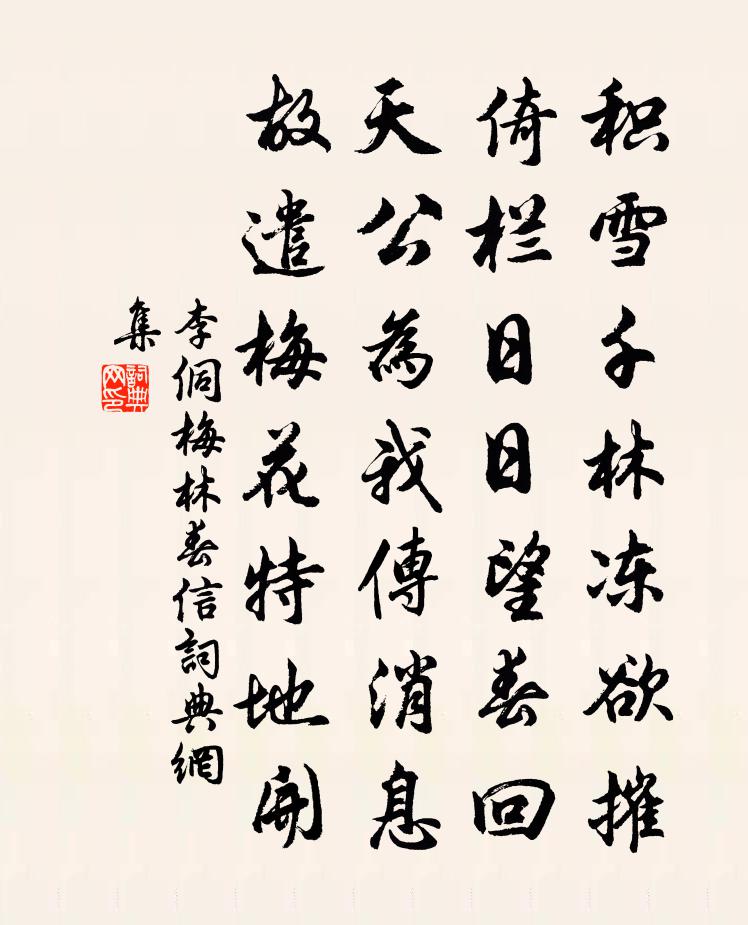 积雪千林冻欲摧
倚栏日日望春回
天公為我傳消息
故遣梅花特地開
李侗梅林春信詞典網
集
詞典
网印